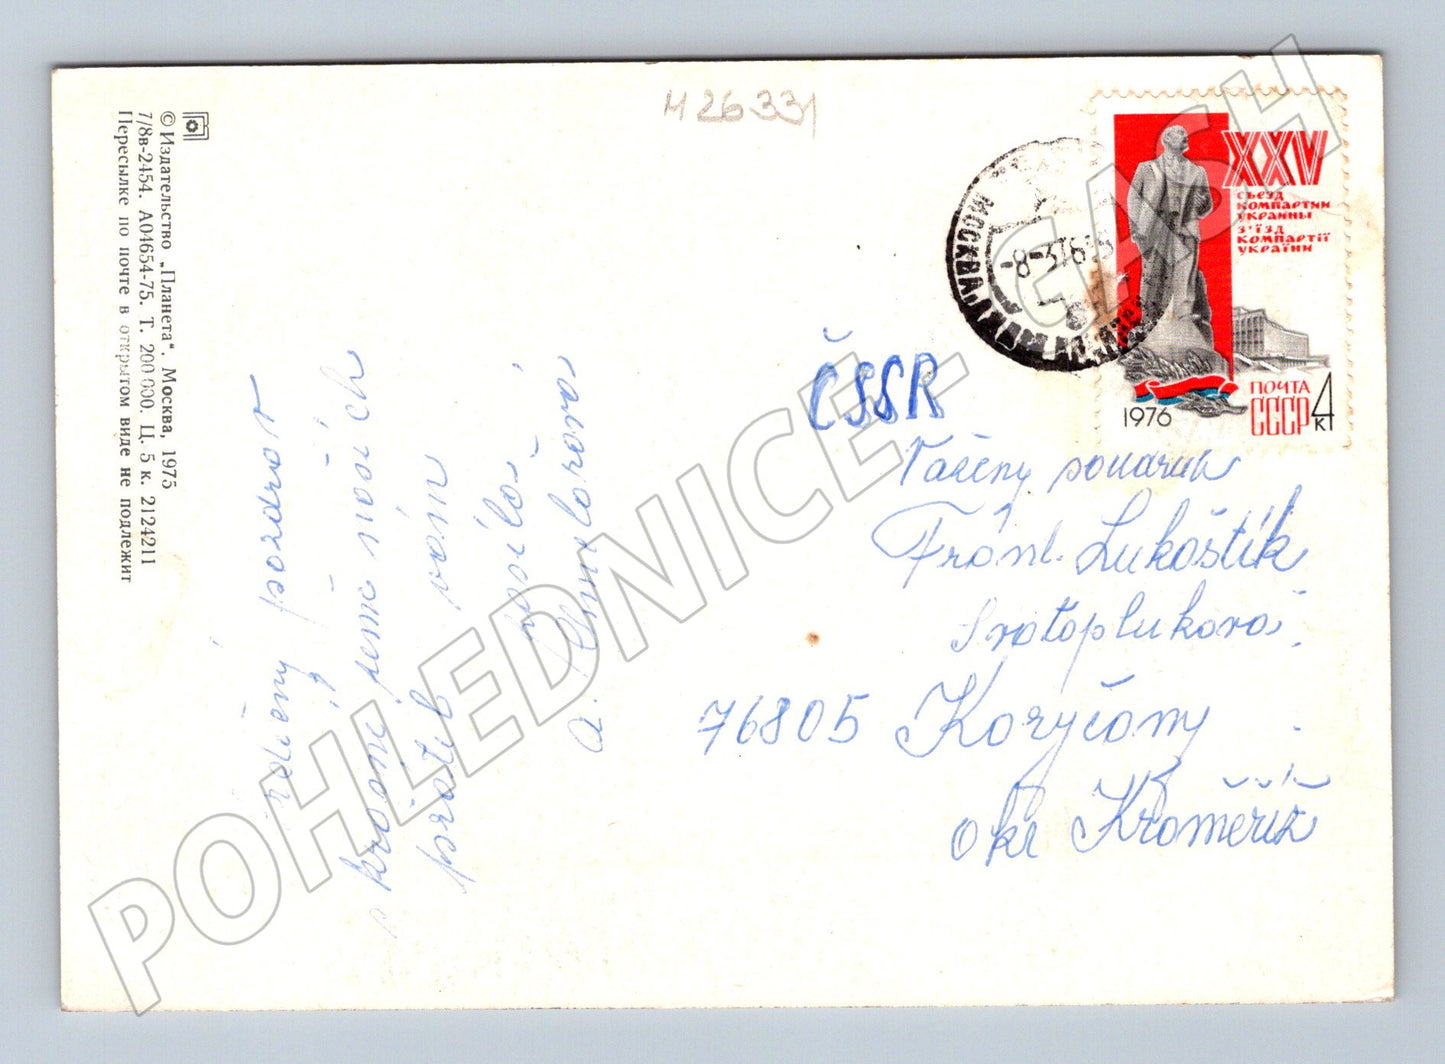 Н 26 331
© Издательство „Планета". Москва, 1975
7/8в-2454. А04654-75. Т. 200 000. Ц. 5 к. 2124211
Пересылке по почте в открытом виде не подлежит
XXV
съезд
компартии
украины
з'їзд
компартії
україни
1976
ПОЧТА
СССР 4к
МОСКВА
-8-376
ČSSR
Vážený
Frant. Lukoštík
Svatoplukova
76805 Koryčany
okr Kroměříž
srdečný pozdrav
z krásné země našich
přátel vám
posílá
a.
POHLEDNICE - CASH